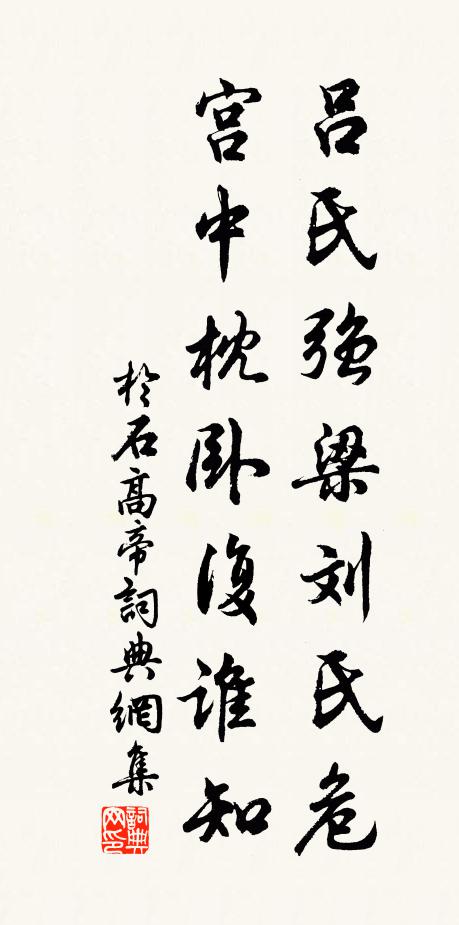 吕氏强梁刘氏危
宫中枕卧復谁知
於石高帝詞典網集
詞典
网印